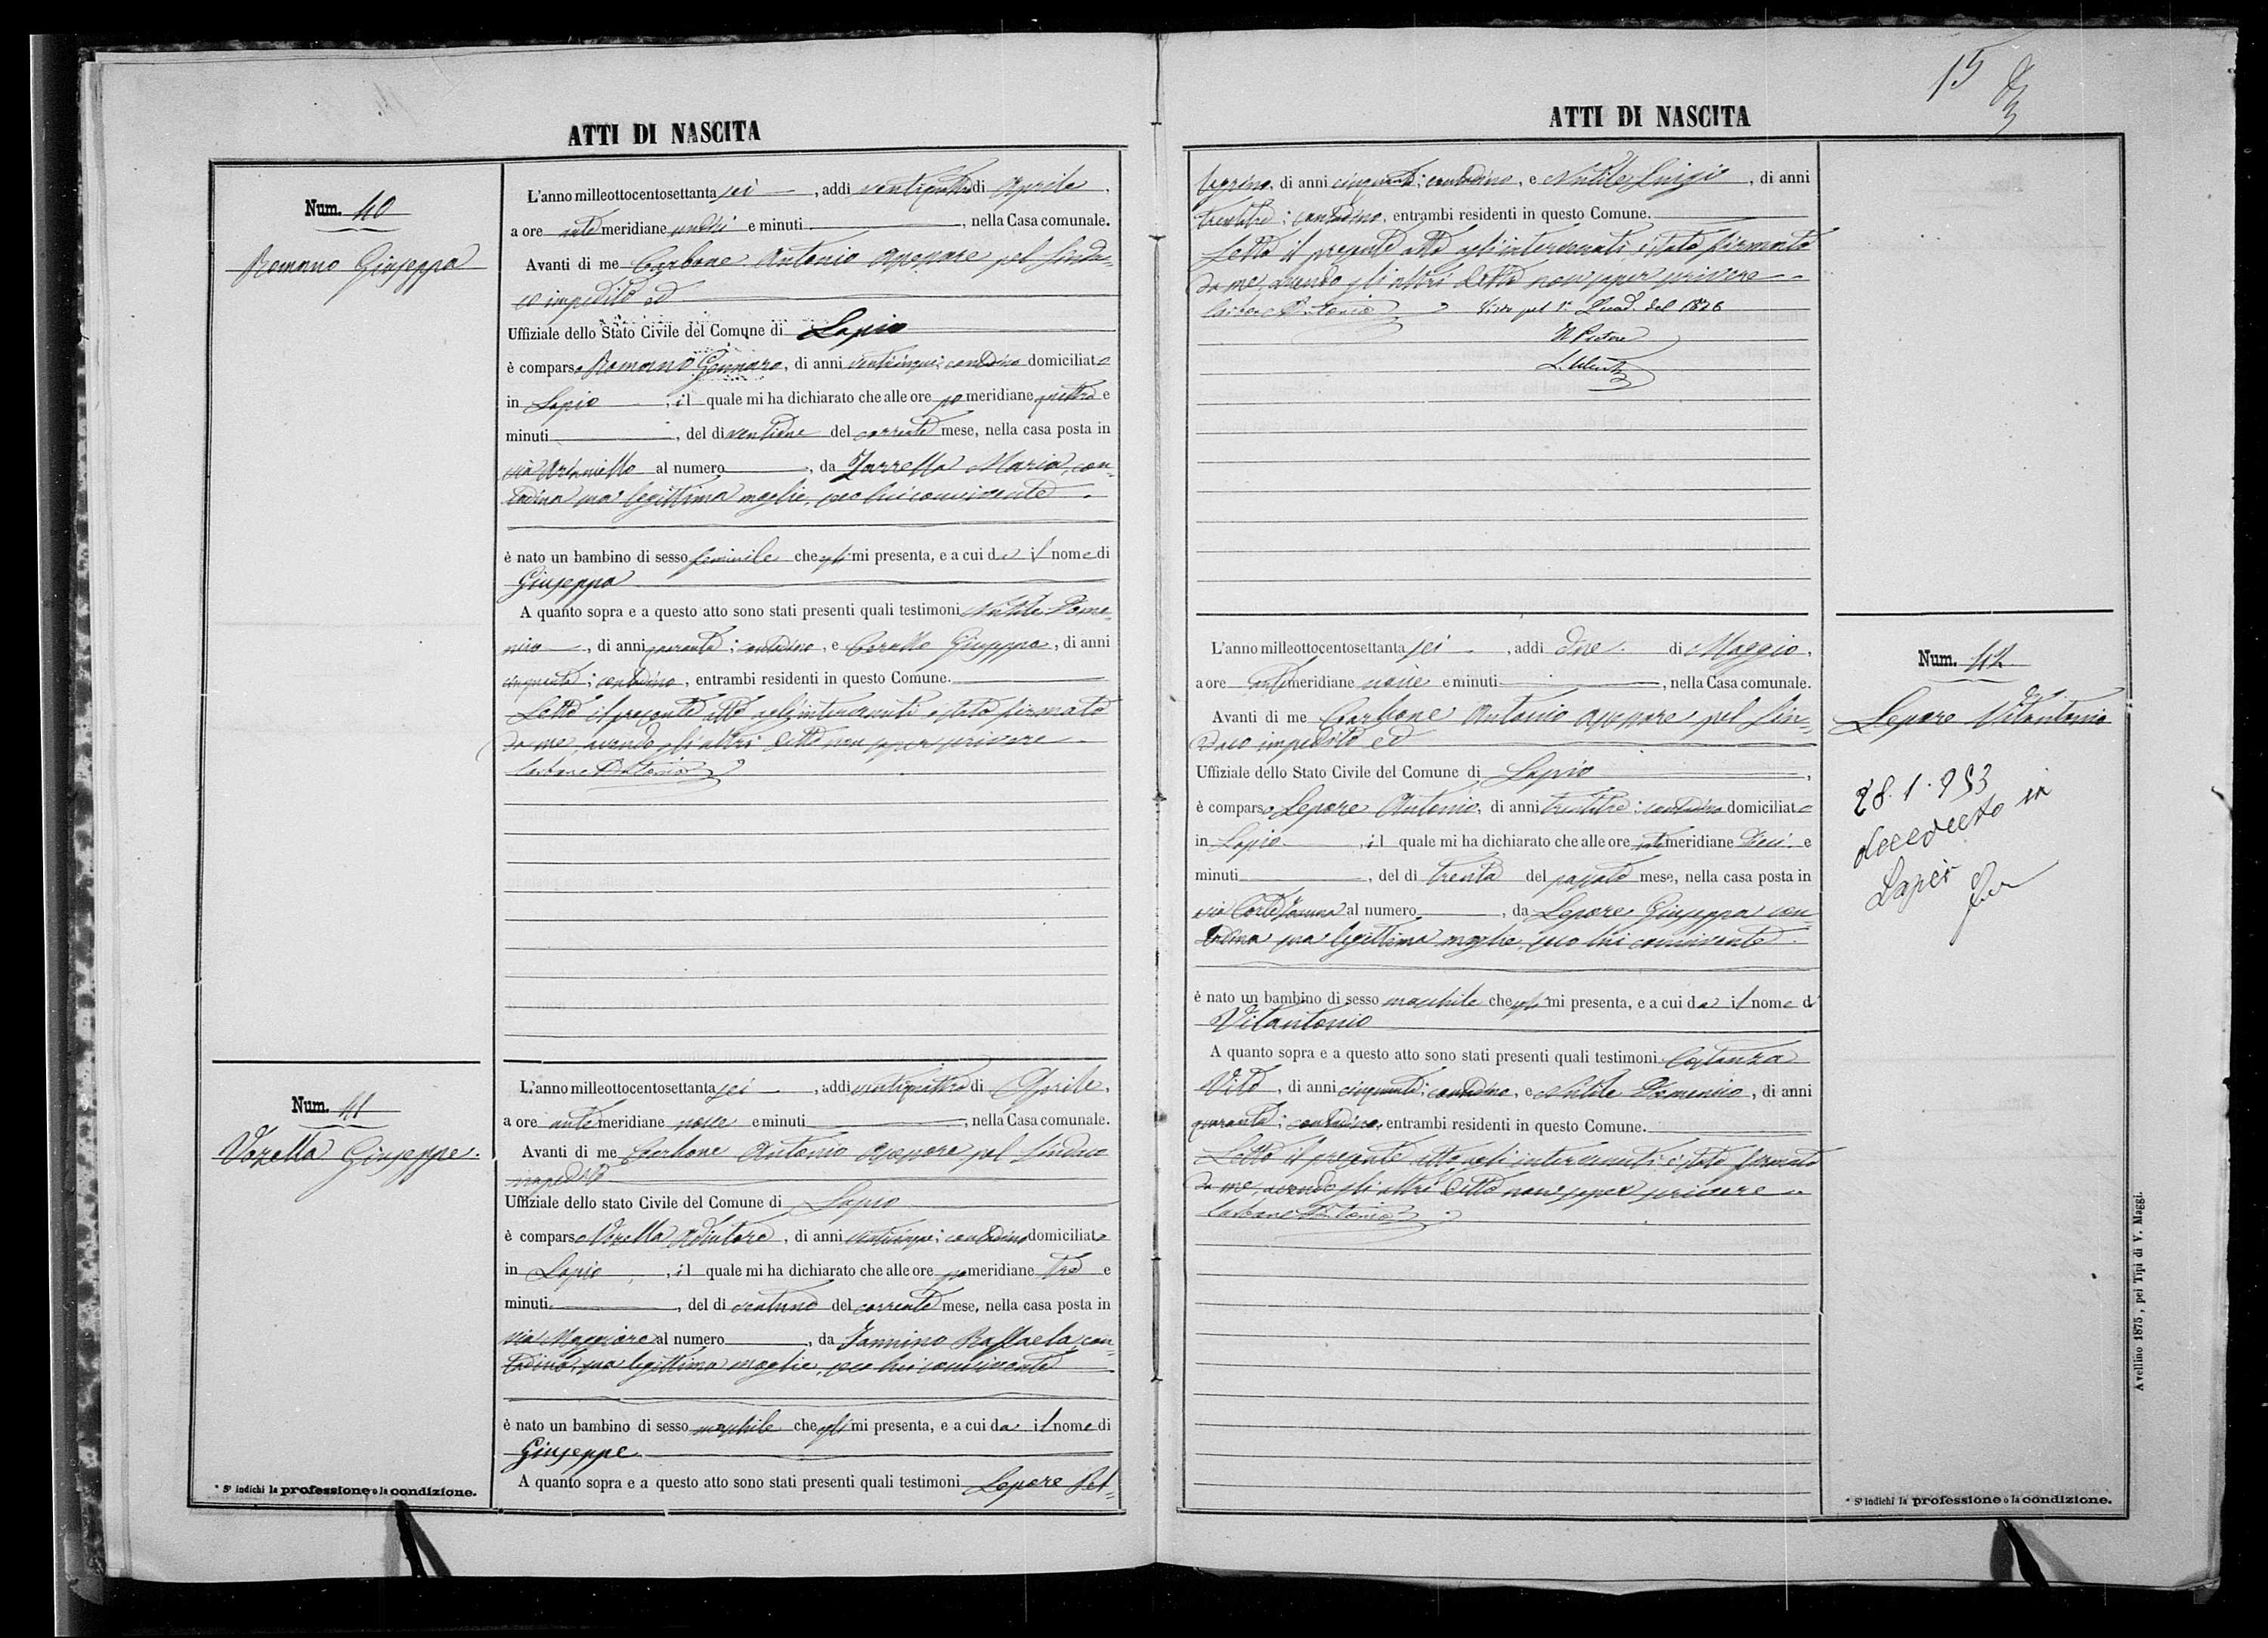 ATTI DI NASCITA
Num. 40
Romano Giuseppa
L'anno milleottocentosettanta sei, addì ventiquattro di Aprile,
a ore antimeridiane undici e minuti, nella Casa comunale.
Avanti di me Carbone Antonio Assessore pel Sinda-
co impedito ed
Uffiziale dello Stato Civile del Comune di Lapio
è comparso Romano Gennaro, di anni venticinque; contadino domiciliato
in Lapio, il quale mi ha dichiarato che alle ore pomeridiane quattro e
minuti, del dì ventidue del corrente mese, nella casa posta in
via al numero, da Zarrella Maria, con-
tadina sua legittima moglie, seco lui convivente
è nato un bambino di sesso feminile che egli mi presenta, e a cui dà il nome di
Giuseppa
A quanto sopra e a questo atto sono stati presenti quali testimoni Nutile Dome-
nico, di anni quaranta; contadino, e Giuseppe, di anni
cinquanta; contadino, entrambi residenti in questo Comune.
Letto il presente atto agli intervenuti è stato firmato
da me, avendo gli altri detto non saper scrivere
Carbone Antonio
Num. 41
Vozella Giuseppe.
L'anno milleottocentosettanta sei, addì ventiquattro di Aprile,
a ore antimeridiane nove e minuti, nella Casa comunale.
Avanti di me Carbone Antonio Assessore pel Sindaco
impedito
Uffiziale dello stato Civile del Comune di Lapio
è comparso Vozella Adiutore, di anni venticinque; contadino domiciliato
in Lapio, il quale mi ha dichiarato che alle ore pomeridiane tre e
minuti, del dì ventuno del corrente mese, nella casa posta in
via Maggiore al numero, da Iannino Raffaela, con-
tadina, sua legittima moglie, seco lui convivente
è nato un bambino di sesso maschile che egli mi presenta, e a cui dà il nome di
Giuseppe
A quanto sopra e a questo atto sono stati presenti quali testimoni Lepore Pel-
* S' indichi la professione o la condizione.
15
ATTI DI NASCITA
legrino, di anni cinquanta; contadino, e Nutile Luigi, di anni
trentatre; contadino, entrambi residenti in questo Comune.
Letto il presente atto agli intervenuti è stato firmato
da me, avendo gli altri detto non saper scrivere
Carbone Antonio
Visto pel 1° Quad. del 1876
Il Pretore
Num. 42
Lepore Vitantonio
28.1.953
deceduto in
Lapio
L'anno milleottocentosettanta sei, addì due di Maggio,
a ore antimeridiane nove e minuti, nella Casa comunale.
Avanti di me Carbone Antonio Assessore pel Sin-
daco impedito ed
Uffiziale dello Stato Civile del Comune di Lapio,
è comparso Lepore Antonio, di anni trentatre; contadino domiciliato
in Lapio, il quale mi ha dichiarato che alle ore antimeridiane dieci e
minuti, del dì trenta del passato mese, nella casa posta in
via al numero, da Lepore Giuseppa con-
tadina sua legittima moglie, seco lui convivente
è nato un bambino di sesso maschile che egli mi presenta, e a cui dà il nome d
Vitantonio
A quanto sopra e a questo atto sono stati presenti quali testimoni Costanza
Vito, di anni cinquanta; contadino, e Nutile Domenico, di anni
quaranta; contadino, entrambi residenti in questo Comune.
Letto il presente atto agli intervenuti è stato firmato
da me, avendo gli altri detto non saper scrivere
Carbone Antonio
* S' indichi la professione o la condizione.
Avellino 1875, pei Tipi di V. Maggi.